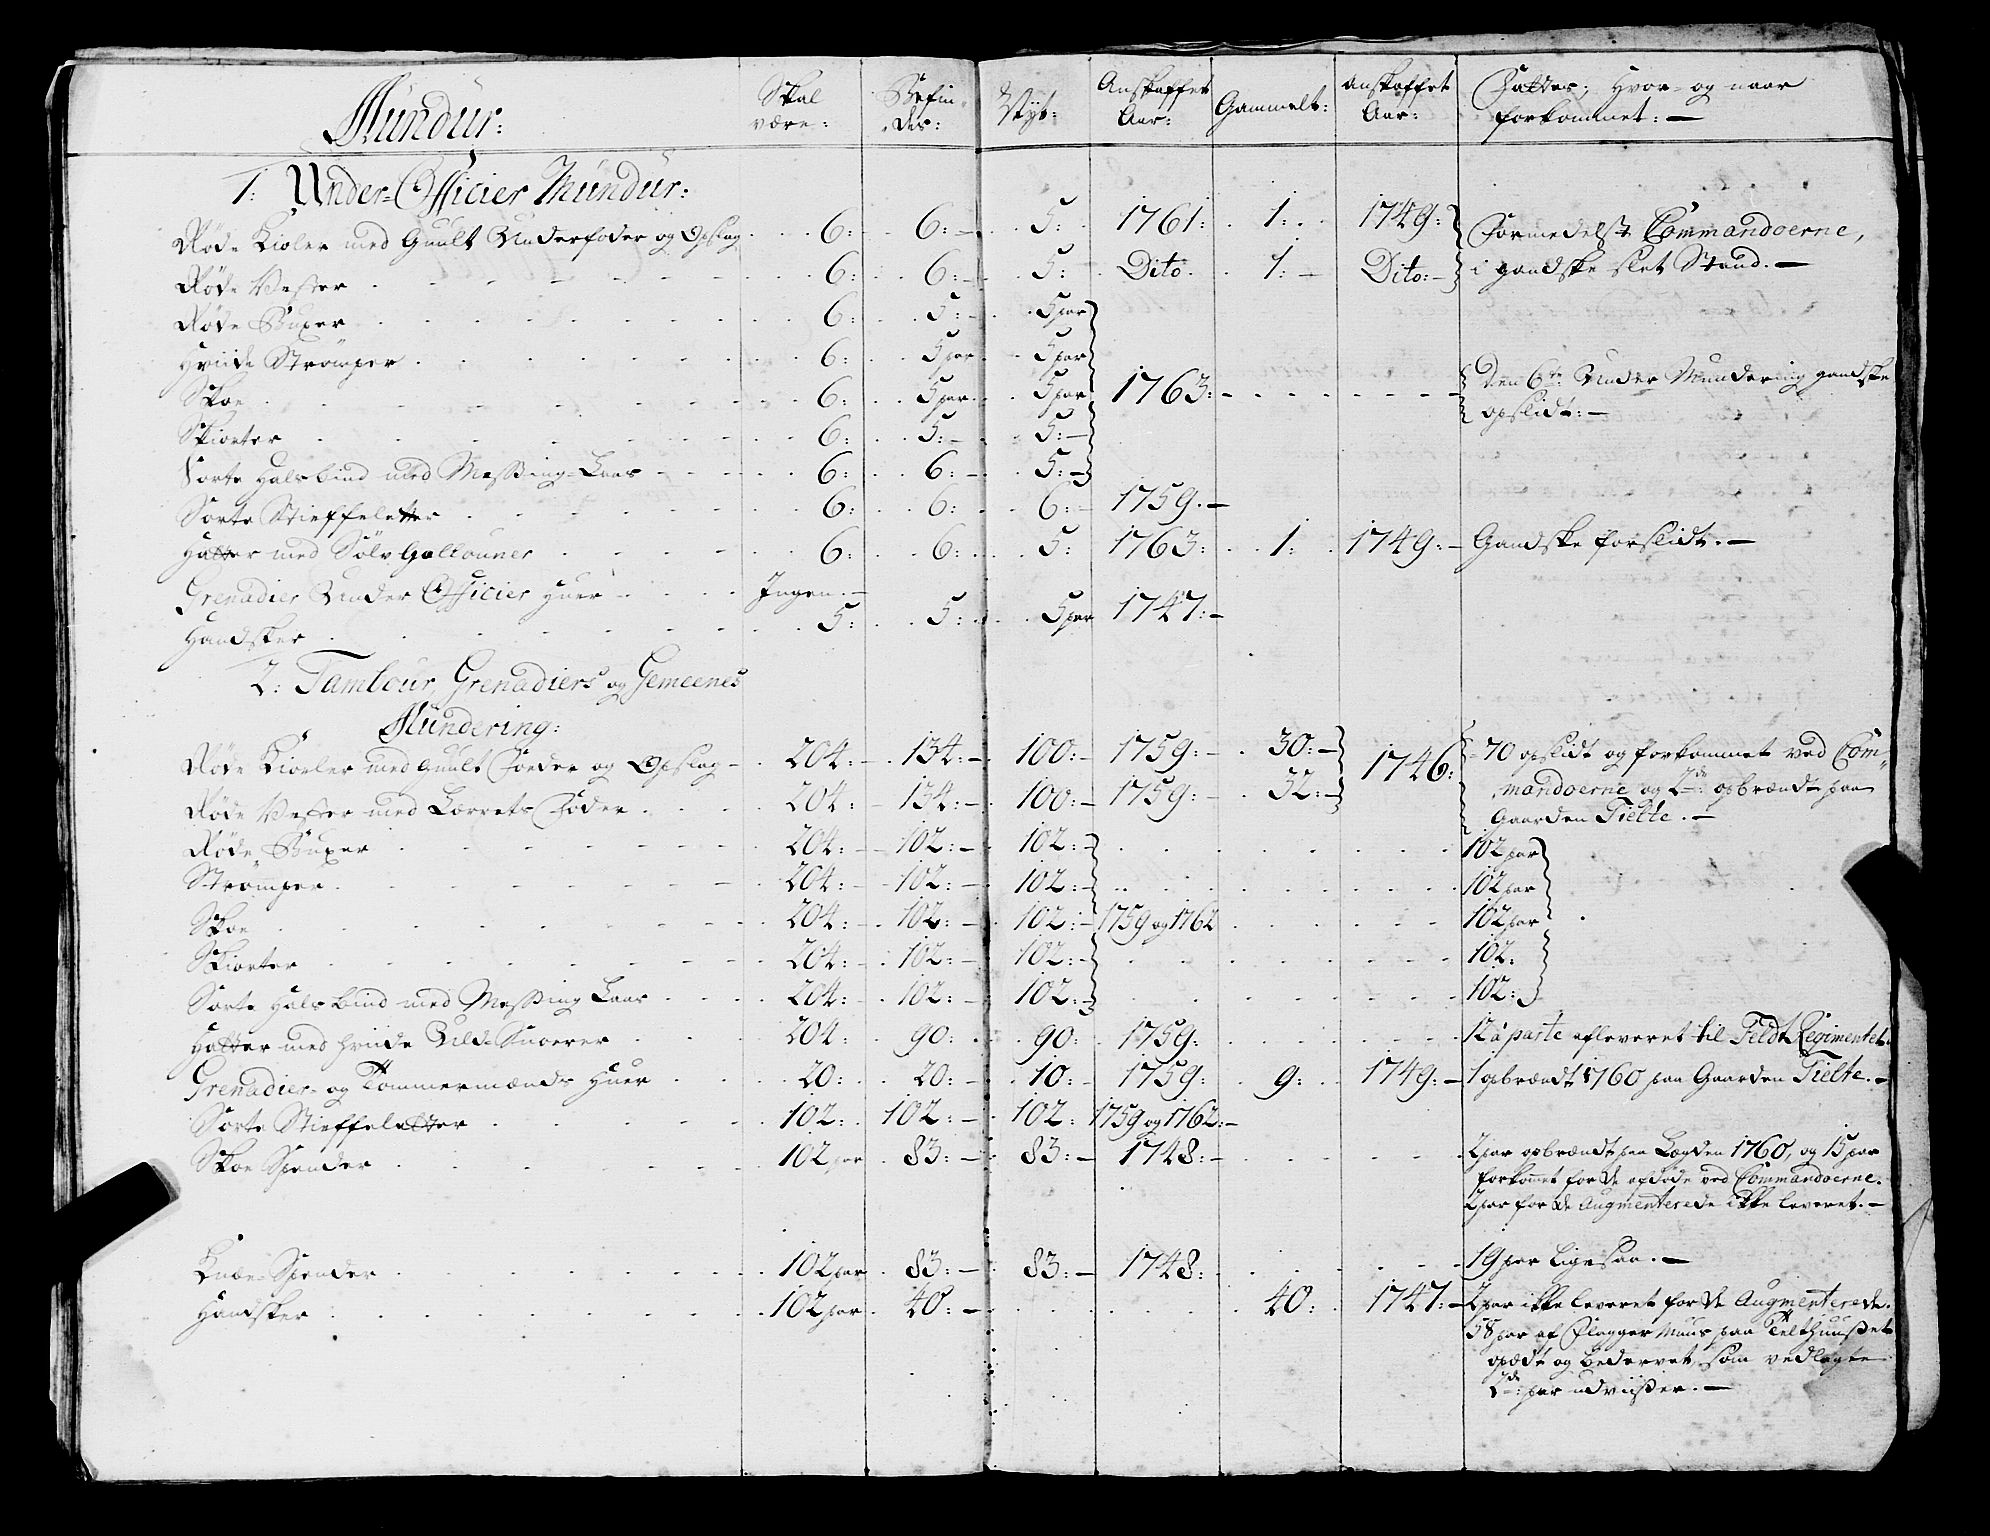 Mundur: Skal være: Befin- des: Nyt: Anskaffet Aar: Gammelt: Anskaffet Aar: Fattes; Hvor- og naar forkommet: —
1: Under-Officier Mundur:
Røde Kioler med Guult Underfoder og Opslag . . . 6: . . 6: — . . 5: 1761: . 1: . . 1749: Formedelst Commandoerne,
Røde Vester . . . 6: . . 6: — . . 5: . Dito . . 1: — Dito: — i gandske slet Stand. —
Røde Buxer . . . 6: . . 5: — . . 5 par
Hviide Strømper . . . 6: . . 5 par . . 5 par
Skoe . . . 6: . . 5 par . . 5 par 1763: — . . . Den 6te Under Mundering gandske
opslidt: —
Skiorter . . . 6: . . 5: — . . 5: —
Sorte Halsbind med Messing-Laas . . . 6: . . 6: — . . 5: —
Sorte Stieffeletter . . . 6: . . 6: . . 6: — 1759. —
Hatter med Sølv Gallouner . . . 6: . . 6: . . 5: 1763: . . 1: . 1749: — Gandske forslidt. —
Grenadier Under Officier Huer . . . Ingen. —
Handsker . . . 5: . . 5: . . 5 par 1747: —
2: Tambour, Grenadiers og Gemeenes
Mundering:
Røde Kioeler med Guult Foeder og Opslag — . 204: — . 134: — 100: — 1759: — . 30: — 1746: 70 opslidt og forkommet ved Com-
Røde Vester med Lærrets Foder . . . 204: — 134: — 100: — 1759: — . 32: — mandoerne og 2de: opbrændt paa
Gaarden Tielte. —
Røde Buxer . . . 204: — 102: — 102: — . . . 102 par
Strømper . . . 204: — 102: — 102: — . . . 102 par
Skoe . . . 204: — 102: — 102: — 1759 og 1762 . . . 102 par
Skiorter . . . 204: — 102: — 102: — . . . 102:
Sorte Halsbind med Messing Laas . . . 204: — 102: — 102: — . . . 102:
Hatter med hviide Snoerer . . . 204: . 90: . . 90: . 1759: . . . 12 à parte afleveret til Feldt Regimentet.
Grenadier- og Tømmermænds Huer . . . 20: . 20: — . . 10: — 1759: . 9: . . 1749: — 1 opbrændt 1760 paa Gaarden Tielte. —
Sorte Stieffeletter . . . 102: . 102: — . 102: 1759 og 1762: —
Skoe Spender . . . 102 par . 83: — . 83: — 1748: — . . . 2 par opbrændt paa Lægden 1760, og 15 par
forkomet for de afdøde ved Commandoerne.
2 par for de Augmenterede ikke leveret. —
Knæe-Spender . . . 102 par . 83: — . 83: — 1748: . . . 19 par ligesaa. —
Handsker . . . 102 par . 40: — . . . 40: . 1747: — 2 par ikke leveret for de Augmenterede.
58 par af Muus paa Telthuuset
opædt og bedervet, som vedlagte
2de: par udviiser. —